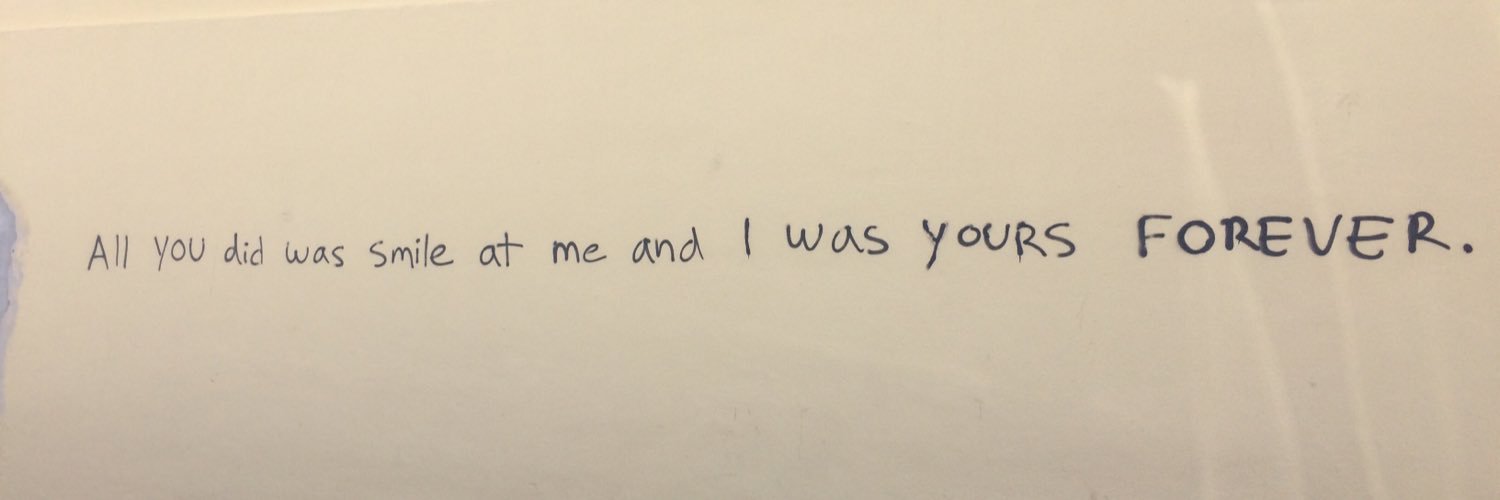 All you did was smile at me and I was yours FOREVER.